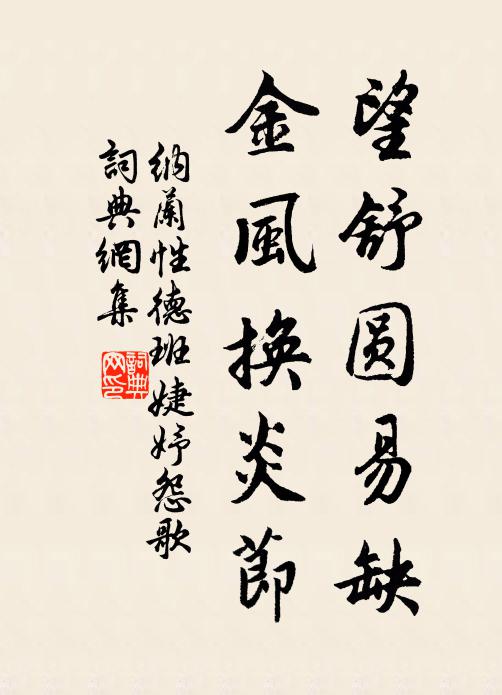 望舒圆易缺
金風換炎節
納蘭性德班婕妤怨歌
詞典網集
詞典
网印